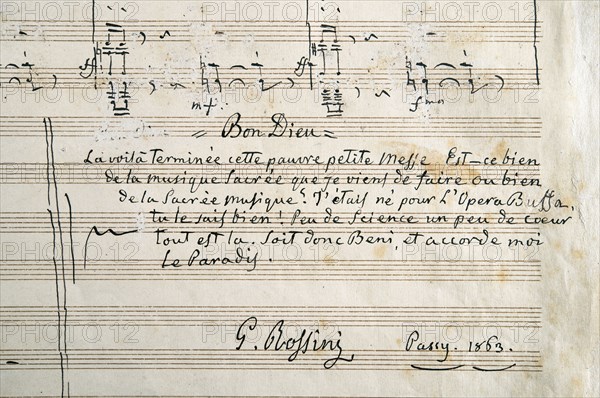 ff
mf
ff
Bon Dieu
La voilà terminée cette pauvre petite Messe Est-ce bien
de la musique Sacrée que je viens de faire ou bien
de la Sacrée musique? J'étais né pour L'Opera Buffa,
tu le sais bien! Peu de science un peu de cœur
tout est la. Soit donc Beni, et accorde moi
Le Paradis.
G. Rossini
Passy. 1863.
PHOTO 12